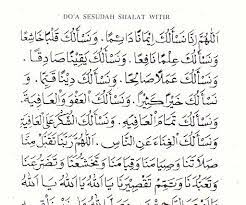 DO'A SESUDAH SHALAT WITIR
اَللّٰهُمَّ اِنَّا نَسْأَلُكَ اِيْمَانًا دَائِمًا. وَنَسْأَلُكَ قَلْبًا خَاشِعًا
وَنَسْأَلُكَ عِلْمًا نَافِعًا. وَنَسْأَلُكَ يَقِيْنًا صَادِقًا.
وَنَسْأَلُكَ عَمَلًا صَالِحًا. وَنَسْأَلُكَ دِيْنًا قَيِّمًا.
وَنَسْأَلُكَ خَيْرًا كَثِيْرًا. وَنَسْأَلُكَ الْعَفْوَ وَالْعَافِيَةَ.
وَنَسْأَلُكَ تَمَامَ الْعَافِيَةِ. وَنَسْأَلُكَ الشُّكْرَ عَلَى الْعَافِيَةِ
وَنَسْأَلُكَ الْغِنَاءَ عَنِ النَّاسِ. اَللّٰهُمَّ رَبَّنَا تَقَبَّلْ مِنَّا
صَلَاتَنَا وَصِيَامَنَا وَقِيَامَنَا وَتَخَشُّعَنَا وَتَضَرُّعَنَا
وَتَعَبُّدَنَا وَتَمِّمْ تَقْصِيْرَنَا يَا اَللّٰهُ يَا اَللّٰهُ يَا اَللّٰهُ